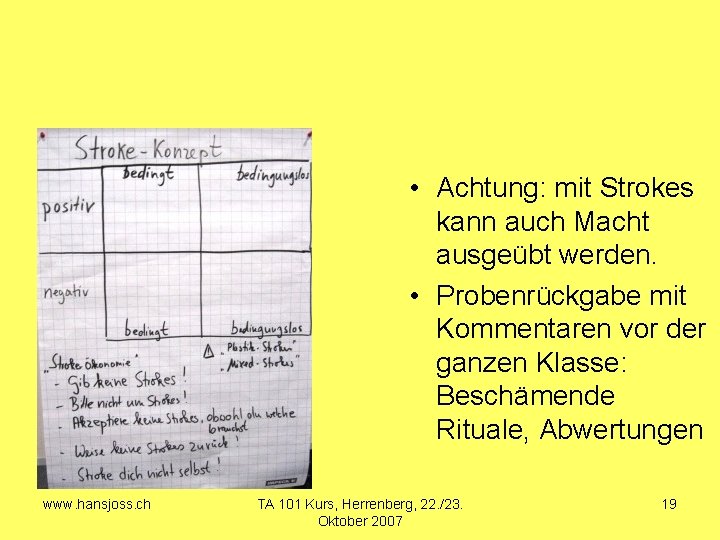 Stroke-Konzept
bedingt bedingungslos
positiv
negativ
bedingt bedingungslos
"Stroke Ökonomie" ⚠ "Plastik-Strokes"
"Mixed-Strokes"
- Gib keine Strokes!
- Bitte nicht um Strokes!
- Akzeptiere keine Strokes, obwohl du welche
brauchst
- Weise keine Strokes zurück!
- Stroke dich nicht selbst!
• Achtung: mit Strokes
kann auch Macht
ausgeübt werden.
• Probenrückgabe mit
Kommentaren vor der
ganzen Klasse:
Beschämende
Rituale, Abwertungen
www.hansjoss.ch
TA 101 Kurs, Herrenberg, 22./23.
Oktober 2007
19